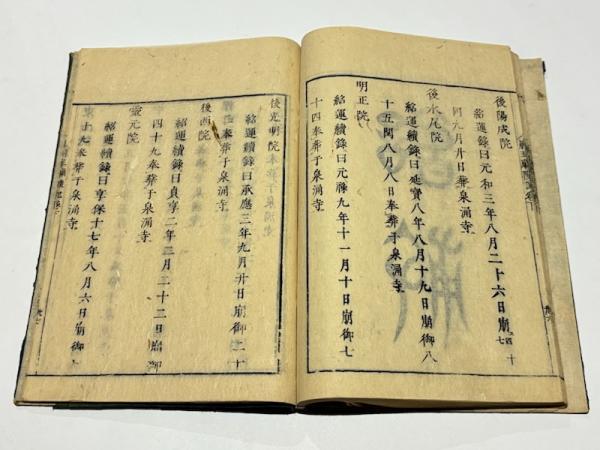 後陽成院
紹運續錄曰元和三年八月二十六日崩四十七
同九月廿日葬泉涌寺
後水尾院
紹運續錄曰延寶八年八月十九日崩御八
十五閏八月八日奉葬于泉涌寺
明正院
紹運續錄曰元祿九年十一月十日崩御七
十四奉葬于泉涌寺
後光明院
紹運續錄曰承應三年九月廿日崩御二十
奉葬于泉涌寺
後西院
紹運續錄曰貞享二年二月二十二日崩御
四十九奉葬于泉涌寺
靈元院
紹運續錄曰享保十七年八月六日崩御
十九奉葬于泉涌寺